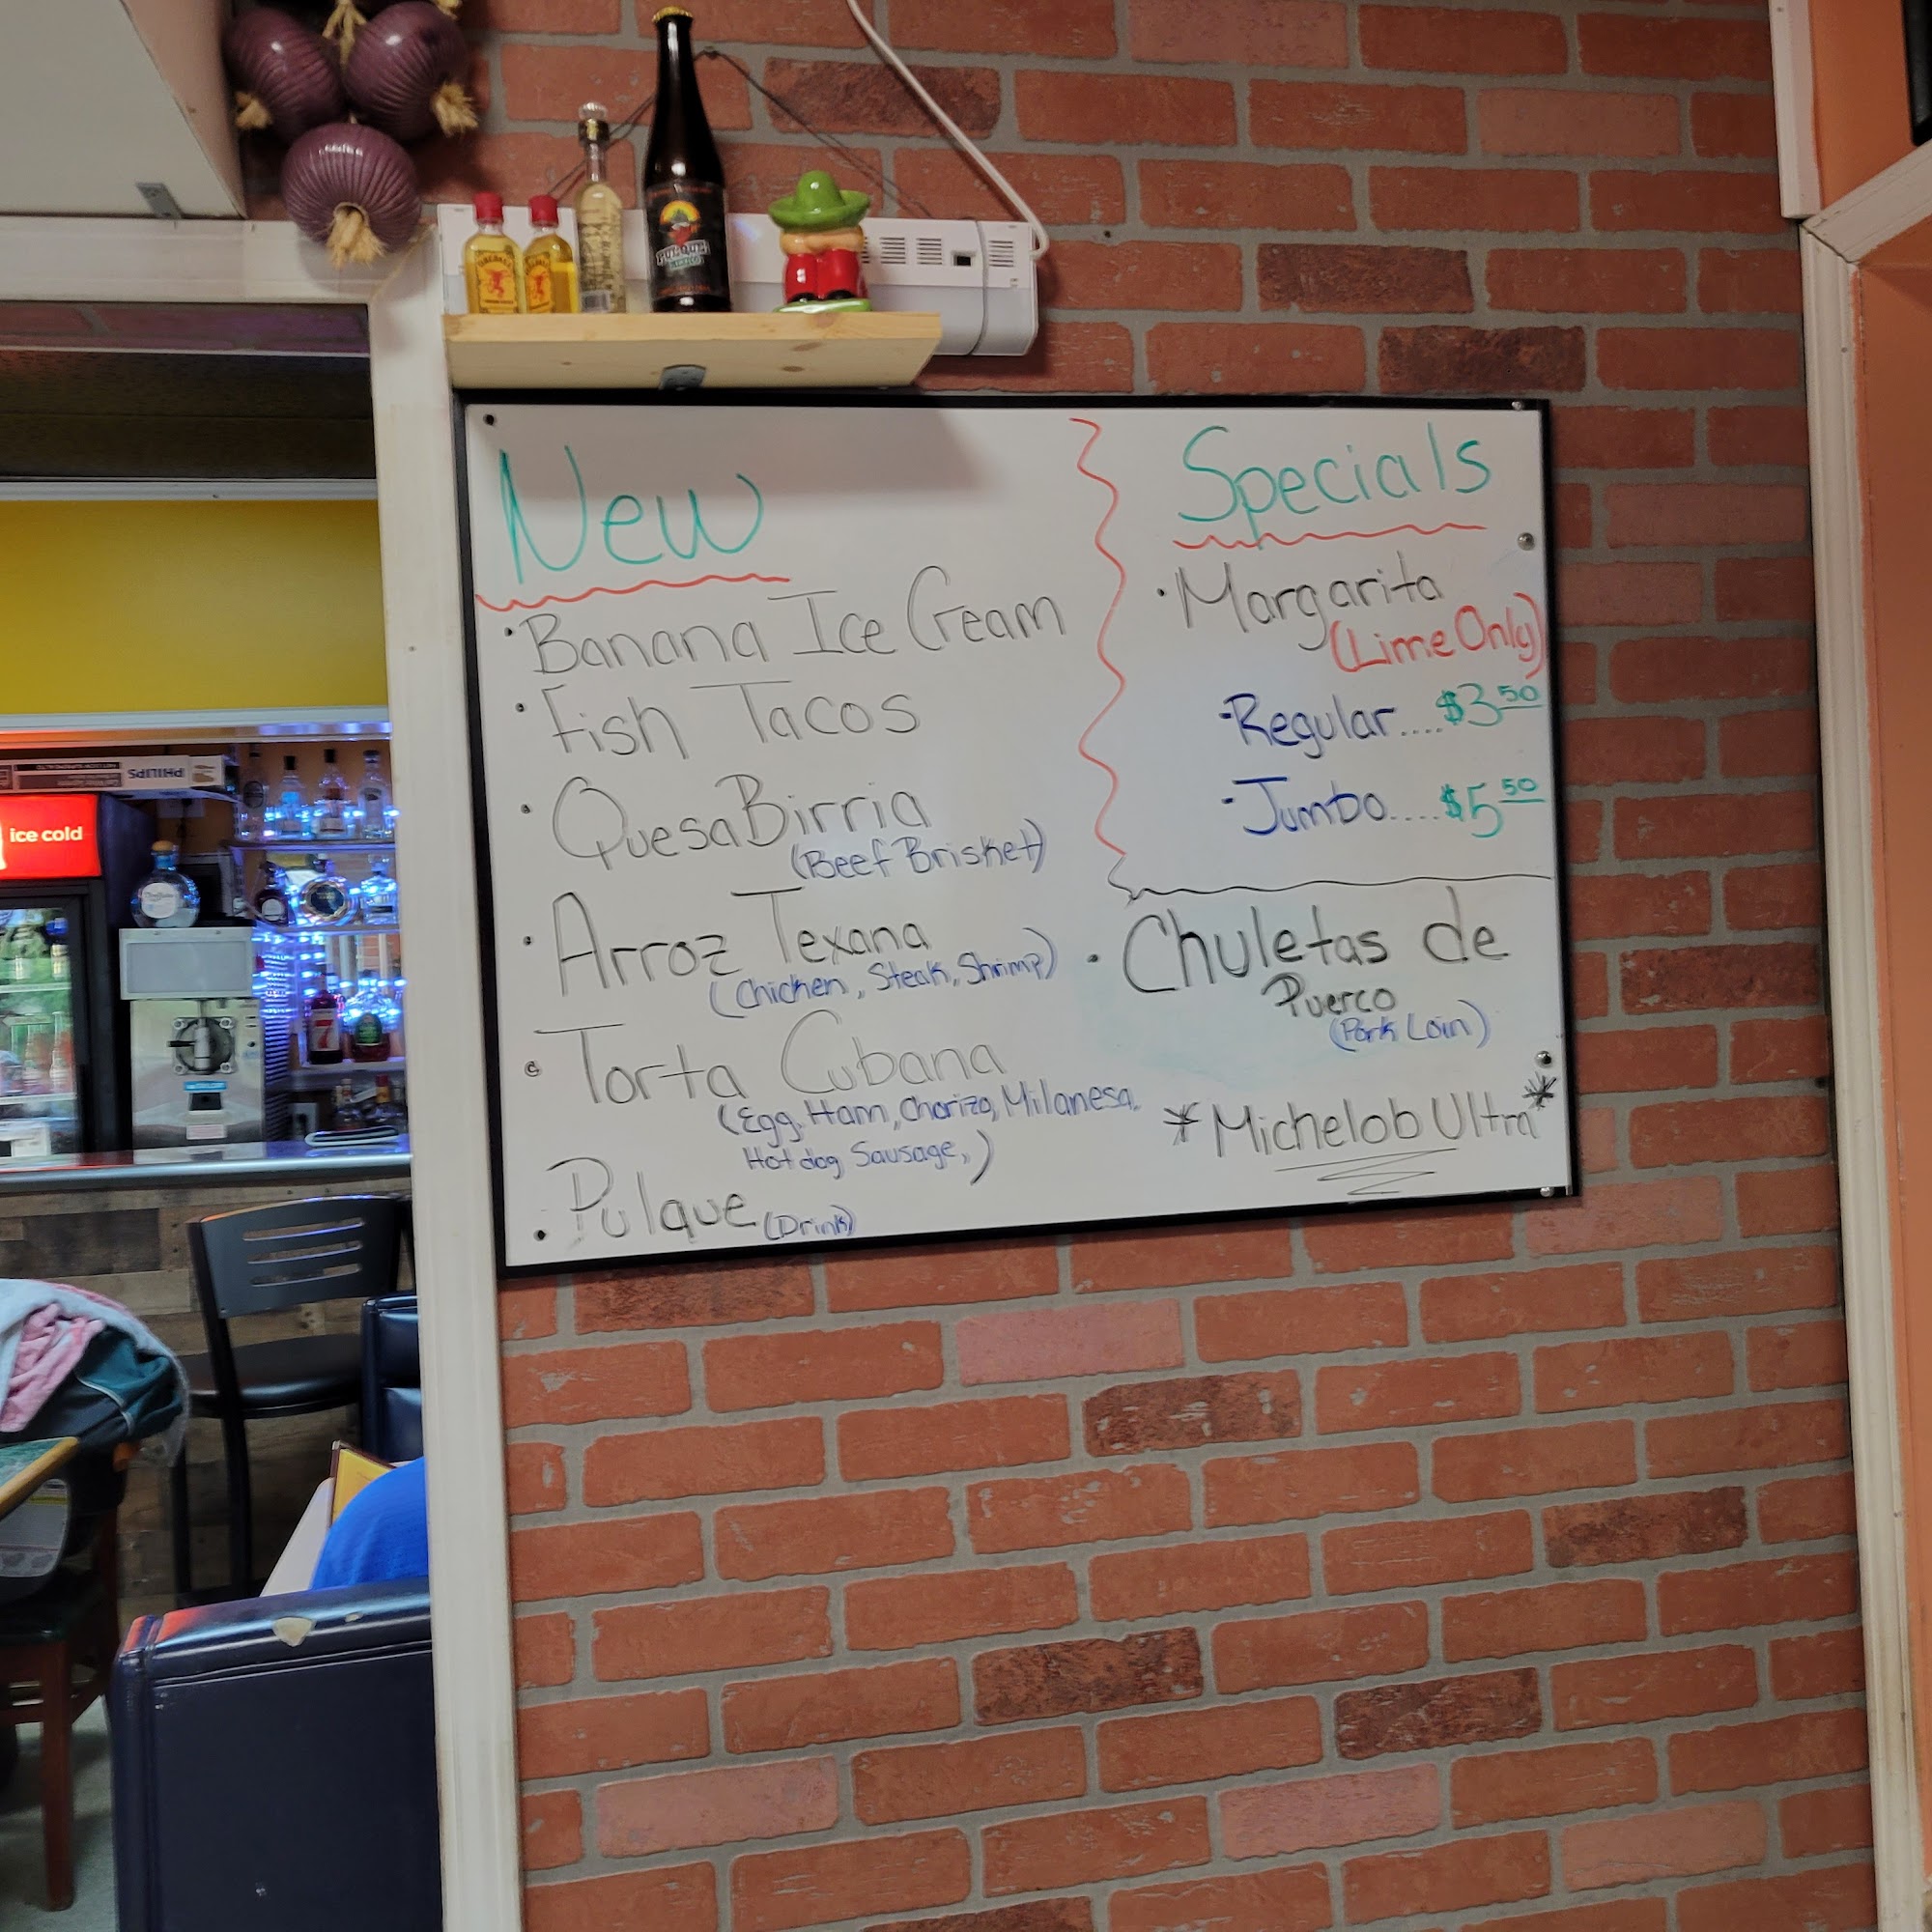 New
• Banana Ice Cream
• Fish Tacos
• QuesaBirria
(Beef Brisket)
• Arroz Texana
(Chicken, Steak, Shrimp)
• Torta Cubana
(Egg, Ham, Chorizo, Milanesa,
Hotdog Sausage,)
• Pulque (Drink)
Specials
• Margarita
(Lime Only)
- Regular.... $3 50
- Jumbo..... $5 50
• Chuletas de
Puerco
(Pork Loin)
* Michelob Ultra *
PHILIPS
ice cold
7